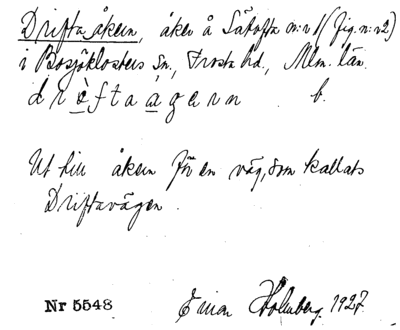 Drifta åkern, åker å Sätofta n:r 1 (fig. n:r 2)
i Bosjöklosters Sn., Frosta hd., Mlm. län.
drèftaågern b.
Ut till åkern för en väg, som kallats
Driftavägen.
Nr 5548 Einon Holmberg. 1927.